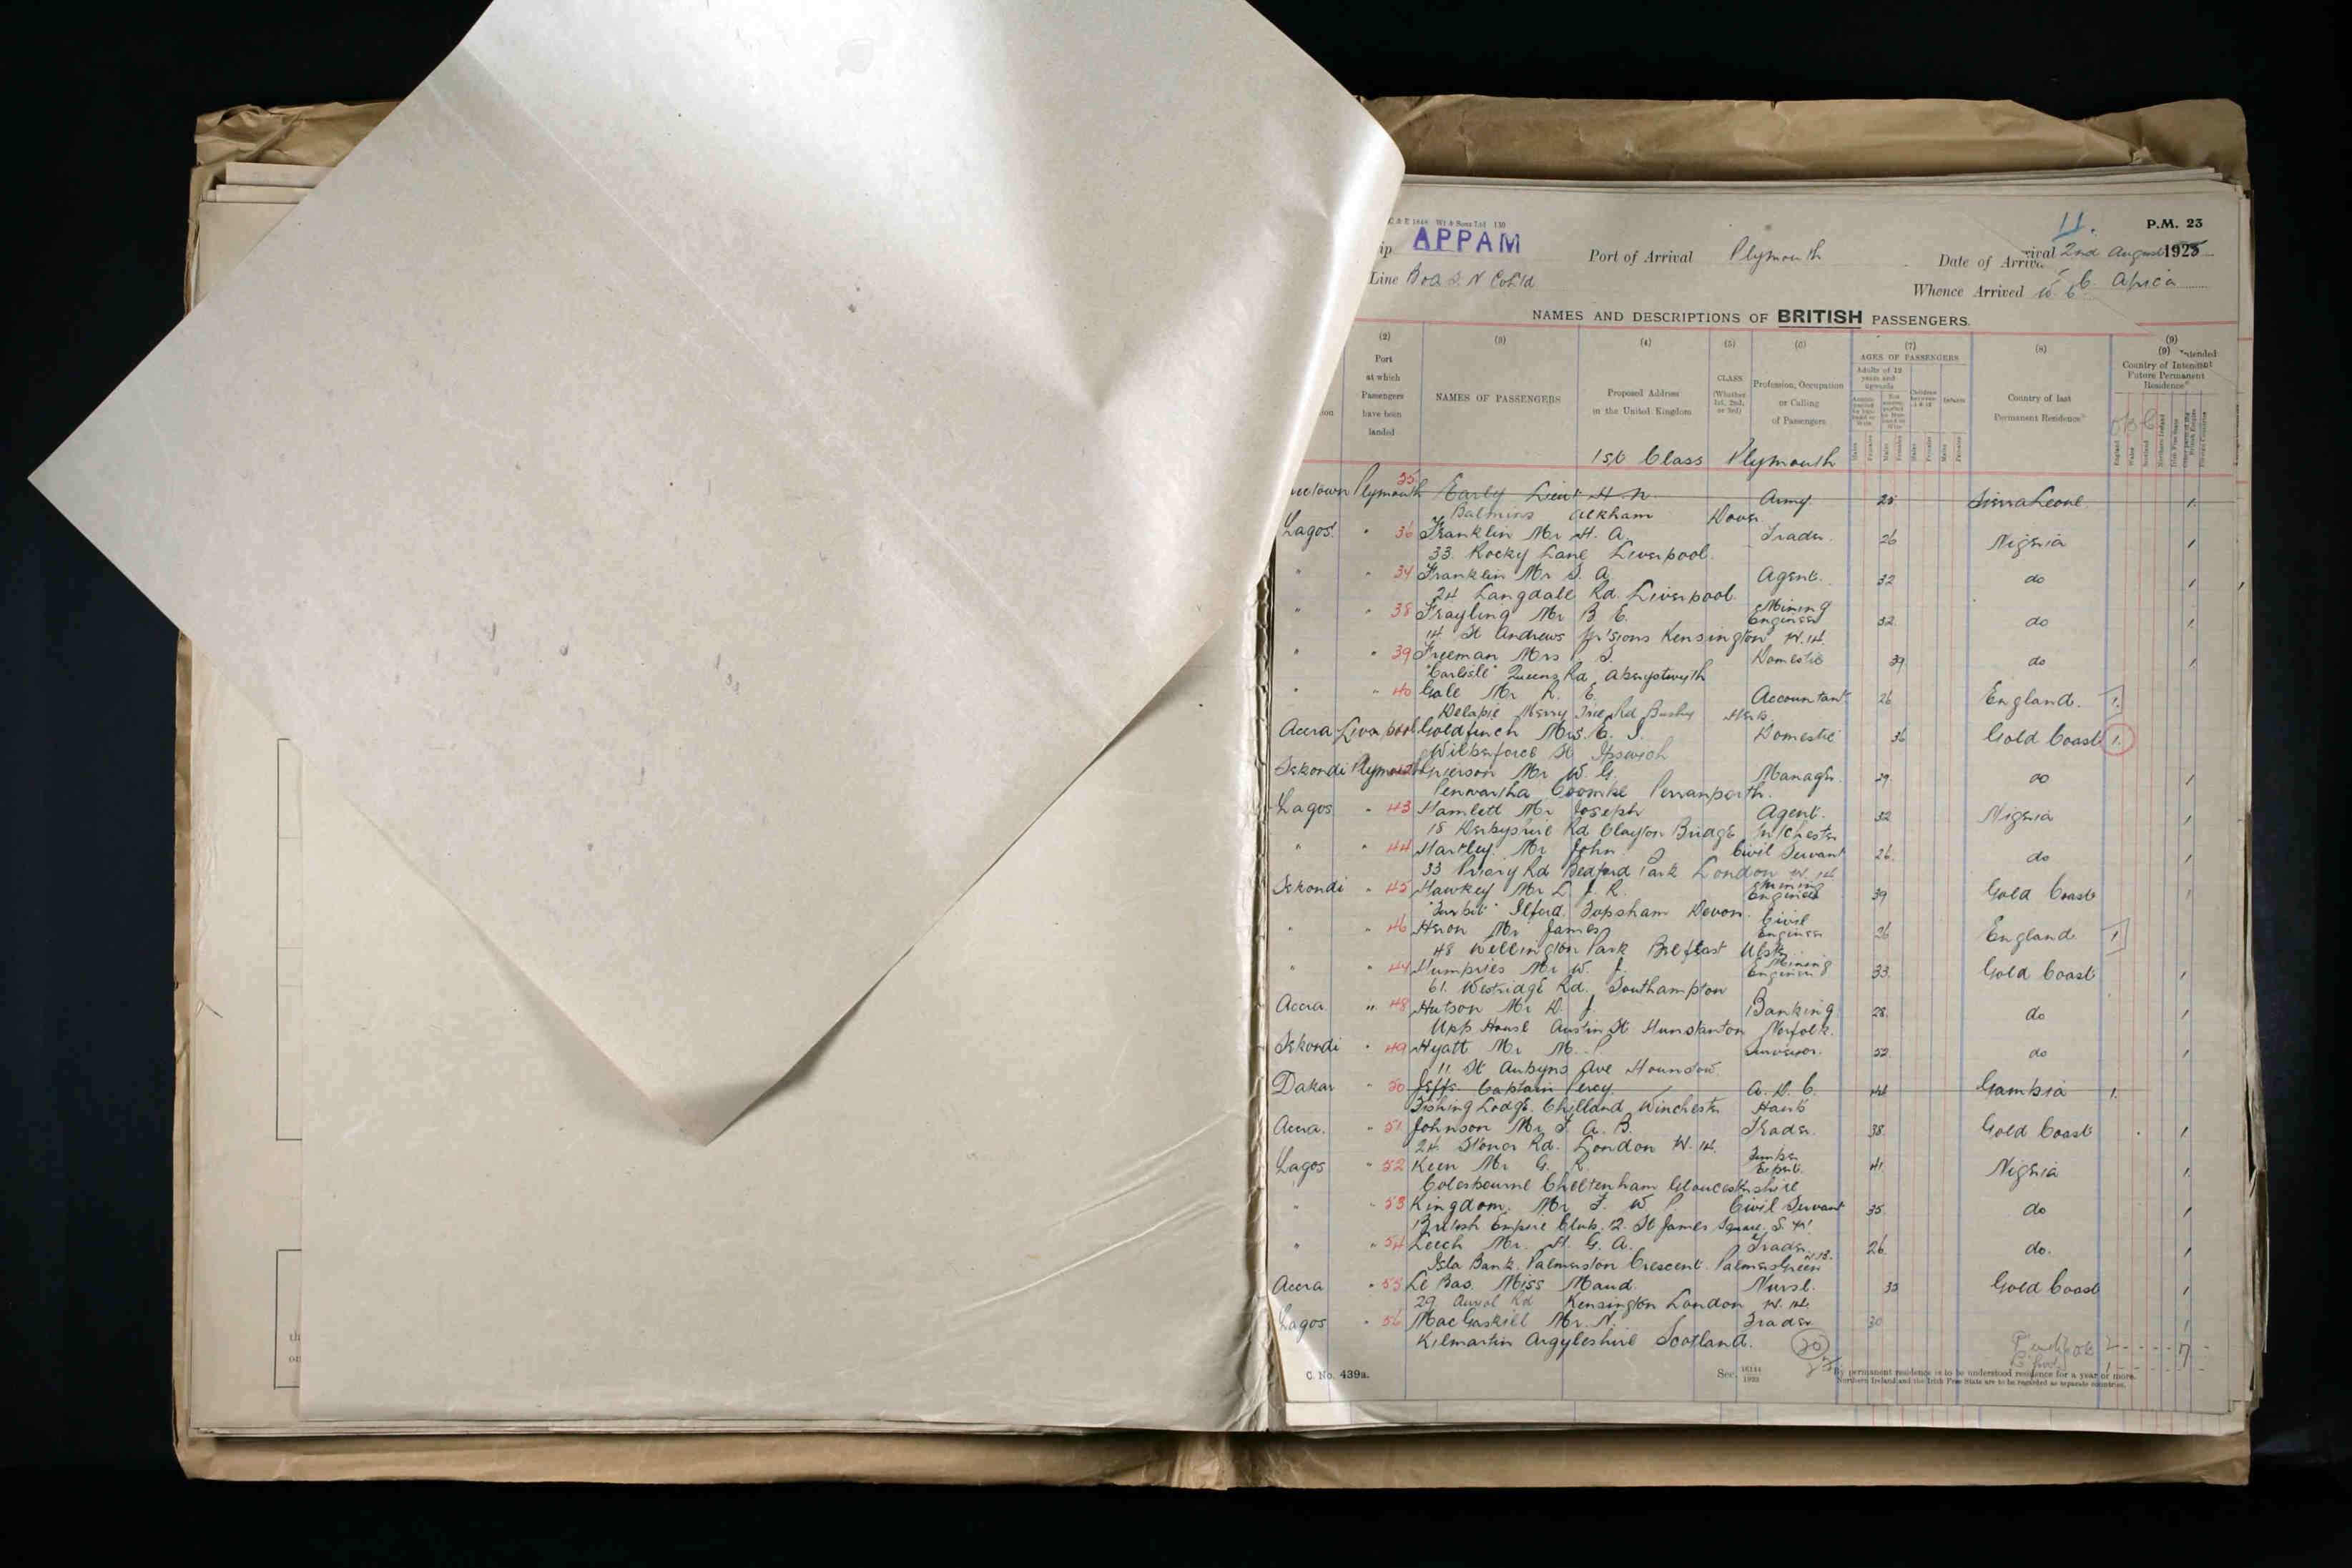 11.
P.M. 23
APPAM
Port of Arrival Plymouth
Date of Arrival 2nd August 1925
Line B & A S. N Co Ltd
Whence Arrived W. C. Africa
NAMES AND DESCRIPTIONS OF BRITISH PASSENGERS.
(2) (3) (4) (5) (6) (7) (8) (9)
Port at which Passengers have been landed
NAMES OF PASSENGERS
Proposed Address in the United Kingdom
CLASS (Whether 1st, 2nd, or 3rd)
Profession, Occupation or Calling of Passengers
AGES OF PASSENGERS
Adults of 12 years and upwards
Infants
Country of last Permanent Residence*
Country of Intended Future Permanent Residence*
1st Class Plymouth
Plymouth Early Lieut H. N. Army 25 Sierra Leone 1
Alkham Dover
Lagos " 36 Franklin Mr H. A. Trader 26 Nigeria 1
33 Rocky Lane Liverpool
" " Franklin Mr S. A. Agent. 32 do 1
24 Langdale Rd. Liverpool
" " 38 Frayling Mr B. E. Mining Engineer 32 do 1
14 St Andrews M'sions Kensington W. 14.
" " 39 Freeman Mrs S. Domestic 39 do 1
"Carlisle" Queens Rd Aberystwyth
" " 40 Gale Mr R. E. Accountant 26 England. 1
Merry Tree Rd Bushy Herts
Accra Liverpool Goldfinch Mrs. E. J. Domestic 36 Gold Coast 1
Wilberforce St Ipswich
Sekondi Plymouth 42 Grierson Mr W. G. Manager 29 do 1
Penwartha Coombe Perranporth.
Lagos " 43 Hamlett Mr Joseph Agent. 32 Nigeria 1
18 Derbyshire Rd Clayton Bridge M/Chester
" " 44 Hartley Mr John Civil Servant 26. do 1
33 Priory Rd Bedford Park London W. 14
Sekondi " 45 Hawkey Mr L. J. R. Mining Engineer 39 Gold Coast 1
Topsham Devon.
" " 46 Heron Mr James Civil Engineer 26 England 1
48 Wellington Park Belfast Ulster
" " Humpries Mr W. J. Mining Engineer 33. Gold Coast 1
61. Westridge Rd. Southampton
Accra " 48 Hutson Mr D. J. Banking 28. do 1
Upp House Austin St Hunstanton Norfolk.
Sekondi " 49 Hyatt Mr M. P. Surveyor. 52. do 1
11. St Aubyns Ave Hounslow.
Dakar " 50 Jeffs Captain Percy A. D. C. 44 Gambia 1.
Fishing Lodge. Chilland Winchester Hants
Accra. " 51 Johnson Mr T. A. B. Trader. 38. Gold Coast 1
24. Stonor Rd. London W. 14.
Lagos " 52 Keen Mr G. R. Timber Expert. 41. Nigeria 1.
Colesbourne Cheltenham Gloucestershire
" " 53 Kingdom. Mr F. W. P. Civil Servant 35. do 1
British Empire Club, 12. St James Square, S. W.
" " 54 Leech Mr. H. G. A. Trader. 26. do. 1
Isla Bank. Palmerston Crescent. Palmers Green N. 13.
Accra " 55 Le Bas. Miss Maud. Nurse. 33 Gold Coast 1
29 Kensington London W. 14.
Lagos " 56 MacGaskill Mr. N. Trader 30 1
Kilmartin Argyleshire Scotland.
20
C. No. 439a.
By permanent residence is to be understood residence for a year or more.
Northern Ireland and the Irish Free State are to be regarded as separate countries.